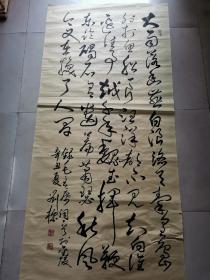 大雨落幽燕白浪滔天秦皇岛
外打鱼船一片汪洋都不见知向谁
边往事越千年魏武挥鞭
东临碣石有遗篇萧瑟秋风
今又是换了人间
录毛主席词
辛丑夏